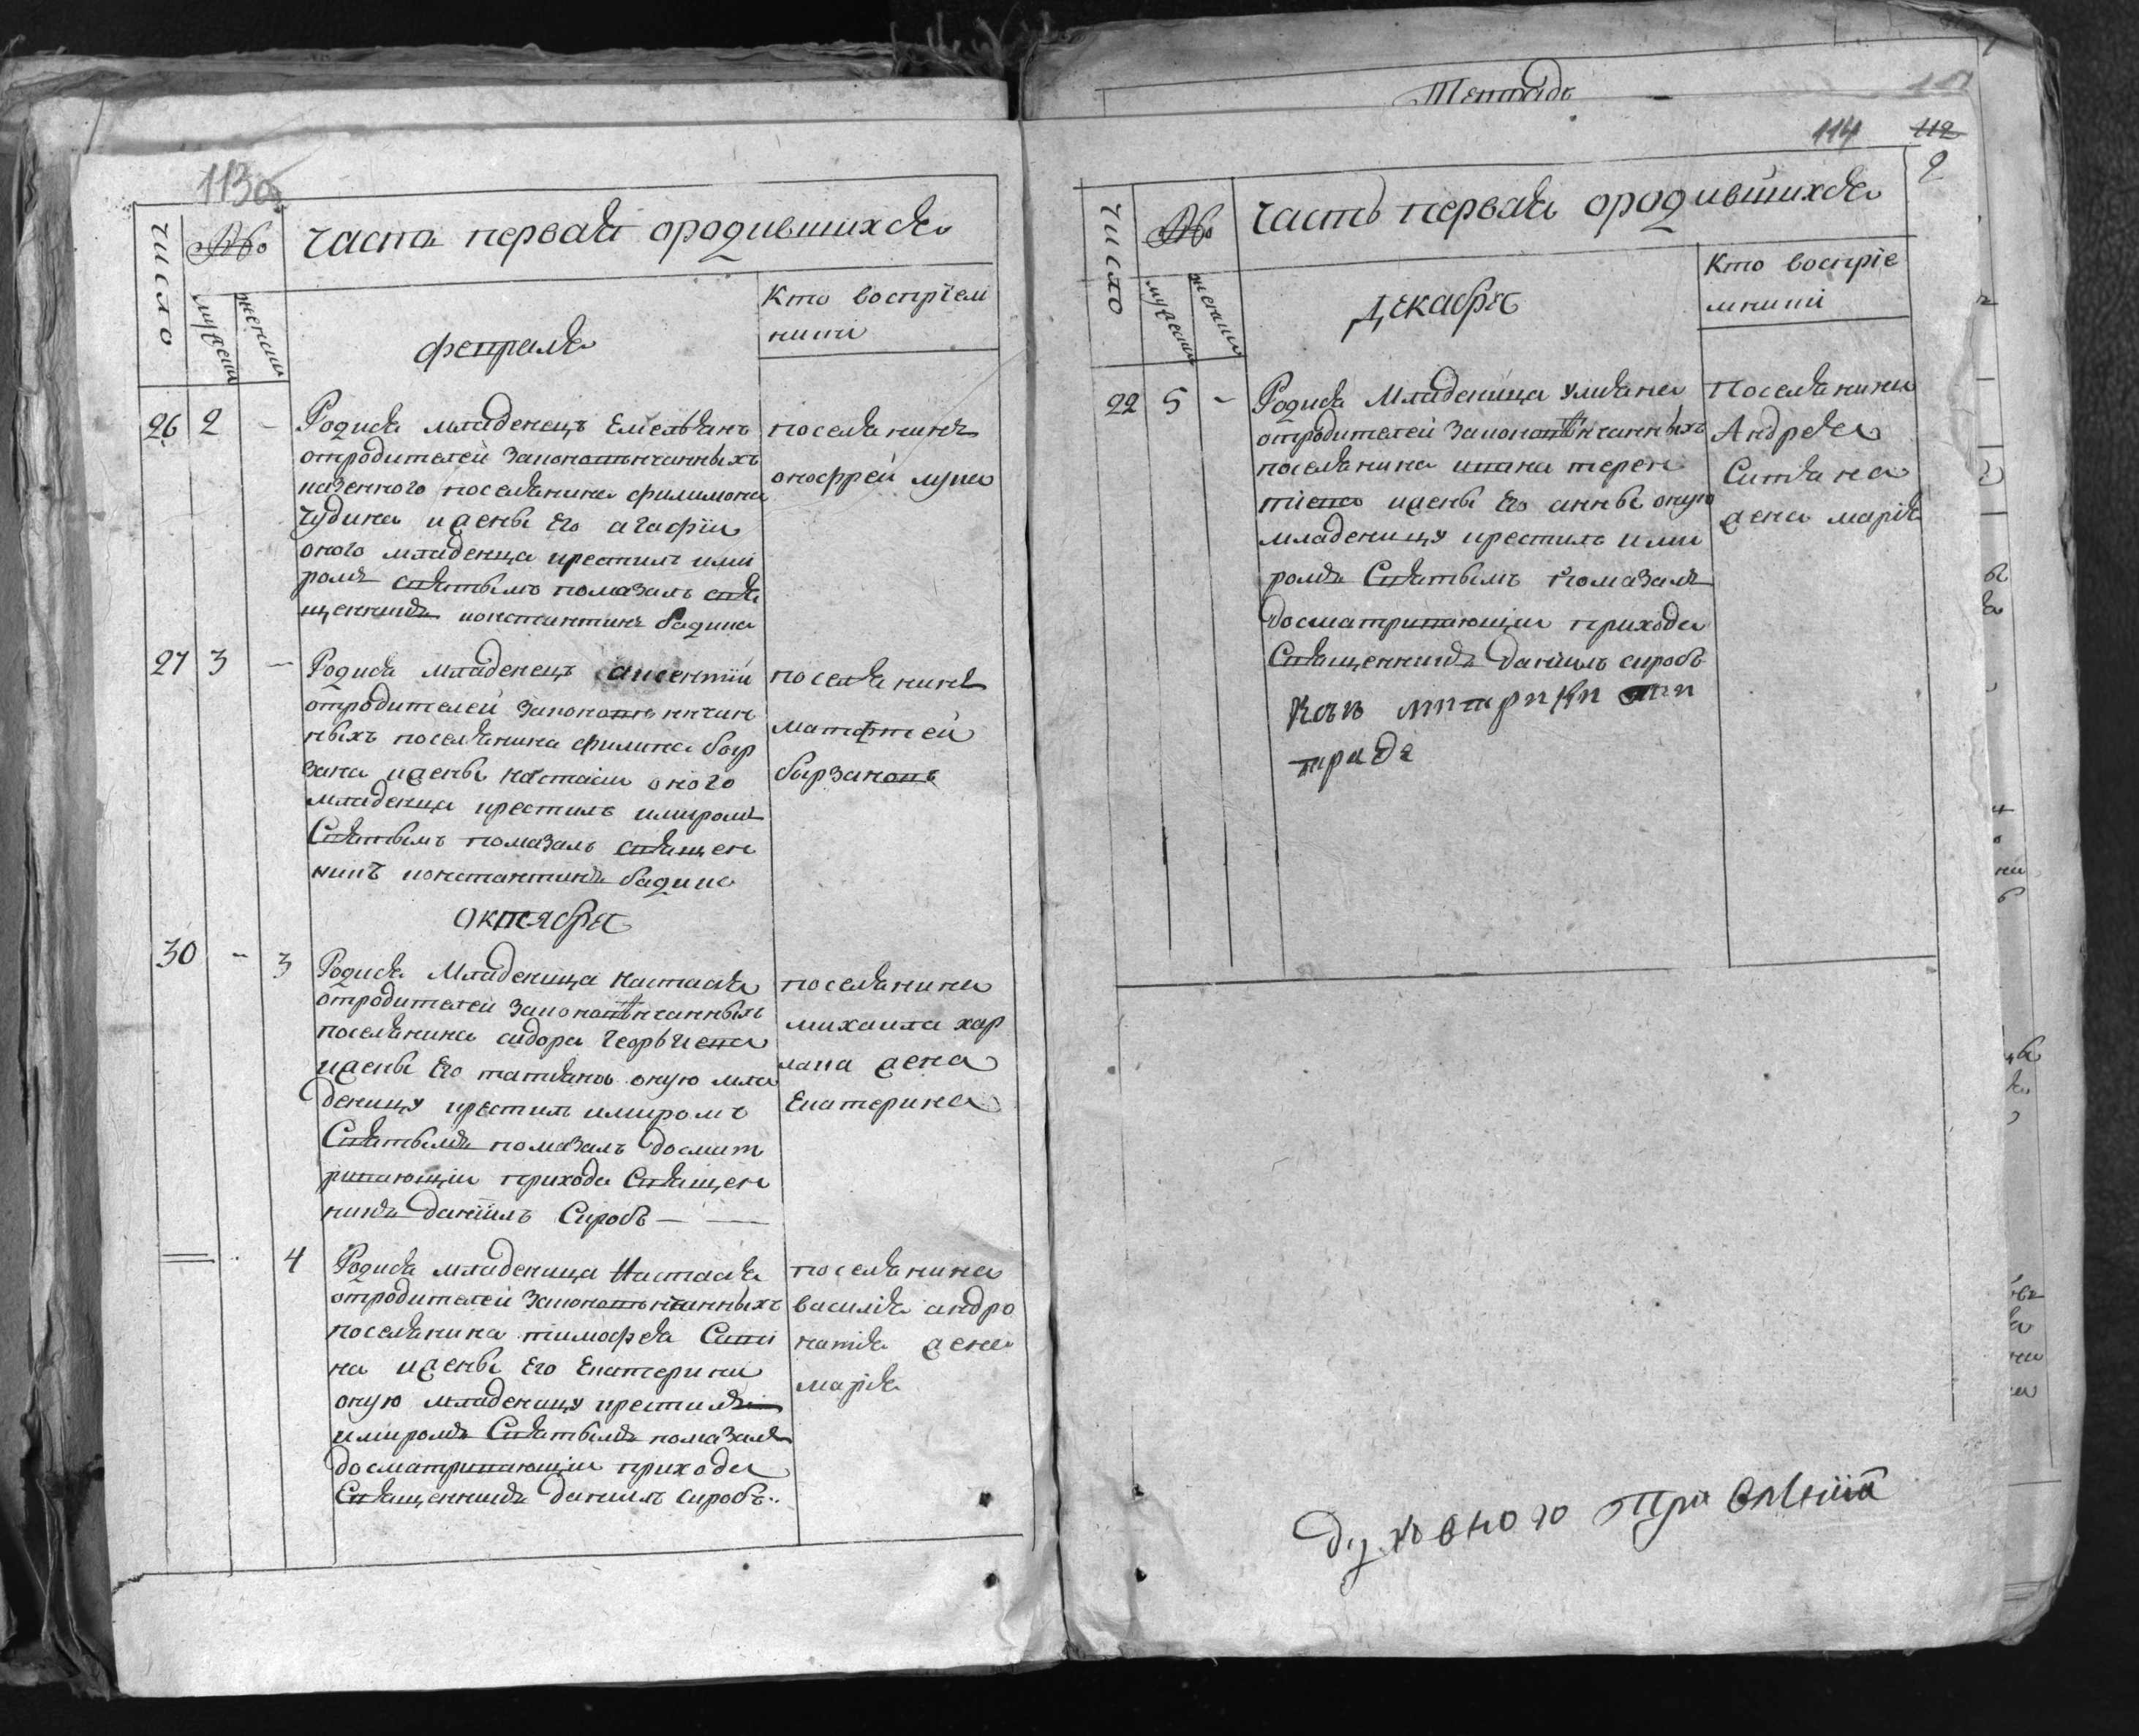 113об
число
№
мужеска
женска
Часть первая ородившихся
февраля
Кто воспріем
ники
26 2 -
Родися младенецъ Емельянъ
отродителей законовѣнчанныхъ
казенного поселянина филимона
чудина ижены Его агафіи
оного младенца крестилъ имѵ
ромъ святымъ помазалъ свя
щенникъ константинъ бадика
поселянинъ
онофрей лупу
27 3 -
Родися младенецъ Авсентій
отродителей законовѣнчан
ныхъ поселянина филипа быр
зана ижены настасіи оного
младенца крестилъ имиромъ
Святымъ помазалъ священ
никъ константинъ бадика
поселянинъ
матфтей
бырзановъ
октября
30 - 3
Родися Младеница настасія
отродителей законовѣнчанныхъ
поселянина сидора георгиева
ижены Его татіаны оную мла
деницу крестилъ имиромъ
Святымъ помазалъ досмат
ривающіи прихода Священ
никъ даніилъ Сыробъ
поселянина
михаила хар
лапа жена
Екатерина
4
Родися младеница Настасія
отродителей законовѣнчанныхъ
поселянина тимофея
на ижены Его Екатерини
оную младеницу крестилъ
имиромъ Святымъ помазалъ
досматривающіи прихода
Священникъ даниилъ сыробъ
поселянина
василія андро
натія жена
марія
Тетрадь
114 112
9
число
№
мужеска
женска
Часть первая ородившихся
декабря
Кто воспріе
мники
22 5 -
Родися Младеница улияна
отродителей законовѣнчанныхъ
поселянина ивана терен
тіева ижены Его анны оную
младеницу крестилъ ими
ромъ Святымъ помазалъ
досматривающіи прихода
Священникъ даніилъ сыробъ
Поселянина
Андрея
Ситяна
жена марія
Духовного Правленія